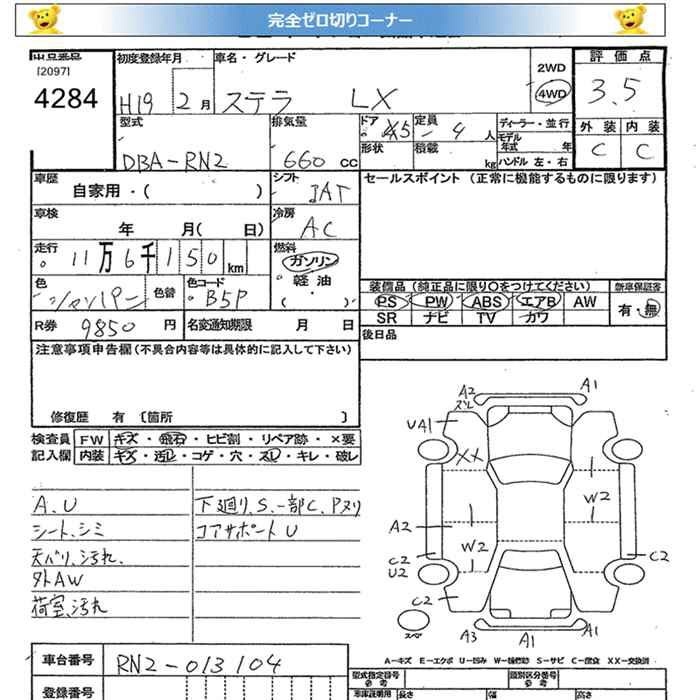 完全ゼロ切りコーナー
出品番号 初度登録年月 車名・グレード 2WD 評価点
[2097]
4284 H19 2月 ステラ LX 4WD 3.5
型式 排気量 ドア 定員 ディーラー・並行 外装 内装
DBA-RN2 660cc 5 4人 モデル年式 年 C C
形状 積載 kg ハンドル 左・右
車歴 自家用・( ) シフト IAT セールスポイント (正常に機能するものに限ります)
車検 年 月( 日) 冷房 AC
走行 11万6千150km 燃料 ガソリン
軽油
( )
色 シャンパン 色替 色コード B5P 装備品 (純正品に限り○をつけてください) 新車保証書
PS PW ABS エアB AW 有・無
SR ナビ TV カワ
R券 9850円 名変通知期限 月 日 後日品
注意事項申告欄 (不具合内容等は具体的に記入して下さい)
修復歴 有 〔箇所 〕
検査員 FW キズ・飛石・ヒビ割・リペア跡・×要
記入欄 内装 キズ・汚レ・コゲ・穴・スレ・キレ・破レ
A.U 下廻り、S.一部C、Pヌリ
シート、シミ コアサポートU
天バリ、汚れ、
外AW
荷室、汚れ
A2 A1
スレ
UA1
XX
W2
A2
W2
C2 C2
U2
C2
A3 A1 A1
スペア
A-キズ E-エクボ U-凹み W-補修跡 S-サビ C-腐食 XX-交換済
車台番号 RN2-013104
型式指定番号 参考 類別区分番号 参考
登録番号 車庫証明用 長さ 幅 高さ